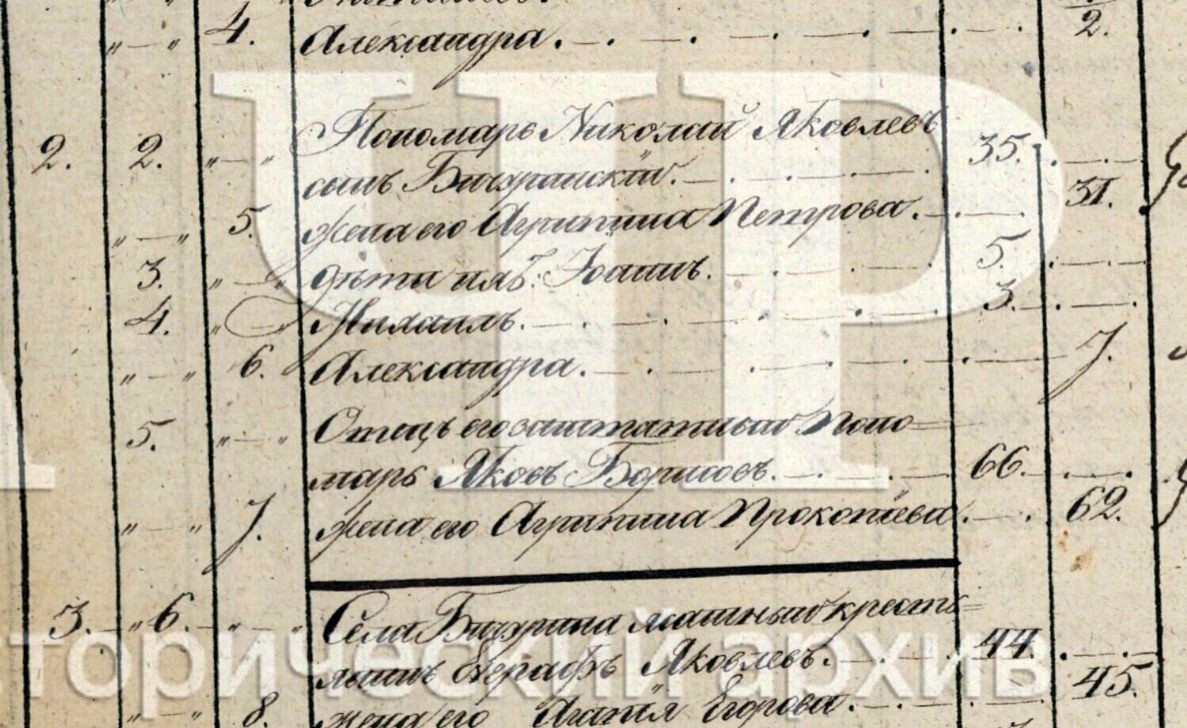 „ — „ 4. Александра. 2.
Пономарь Николай Яковлевъ
2. 2. „ — „ сынъ Бичуринскій. 35.
„ — „ 5. жена его Агрипина Петрова. 31.
3. „ — „ дѣти ихъ: Іоаннъ. 5.
4. „ — „ Михаилъ. 3.
„ — „ 6. Александра. 7.
5. „ — „ Отецъ его заштатный поно=
марь Яковъ Борисовъ. 66.
„ — „ 7. жена его Агрипина Прокопіева. 62.
3. „ 6. „ — „ Села Бичурина ясашный кресть=
янинъ Яковлевъ. 44.
„ — „ 8. жена его Агапія Егорова. 45.
ЧР
торический архив